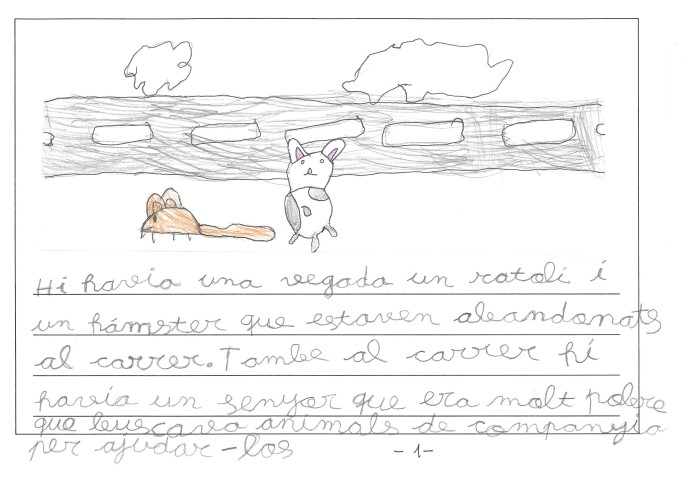 Hi havia una vegada un ratoli i
un hámster que estaven abandonats
al carrer. Tambe al carrer hi
havia un senyor que era molt pobre
que buscava animals de companyia
per ajudar-los
-1-